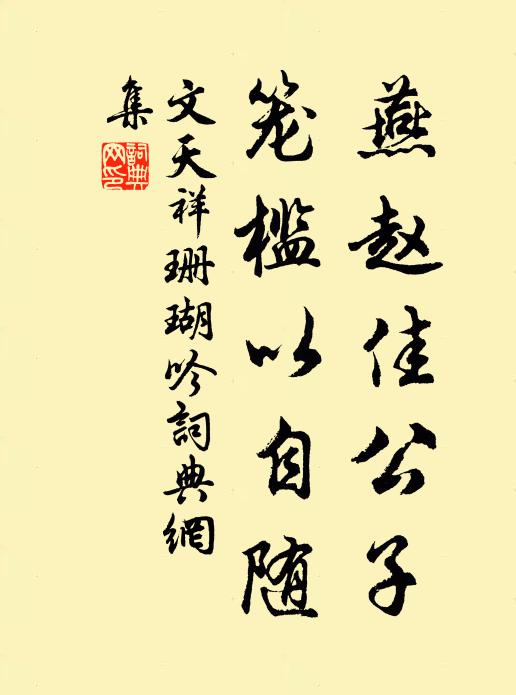 燕赵佳公子
笼槛以自随
文天祥珊瑚吟詞典網
集
詞典網印